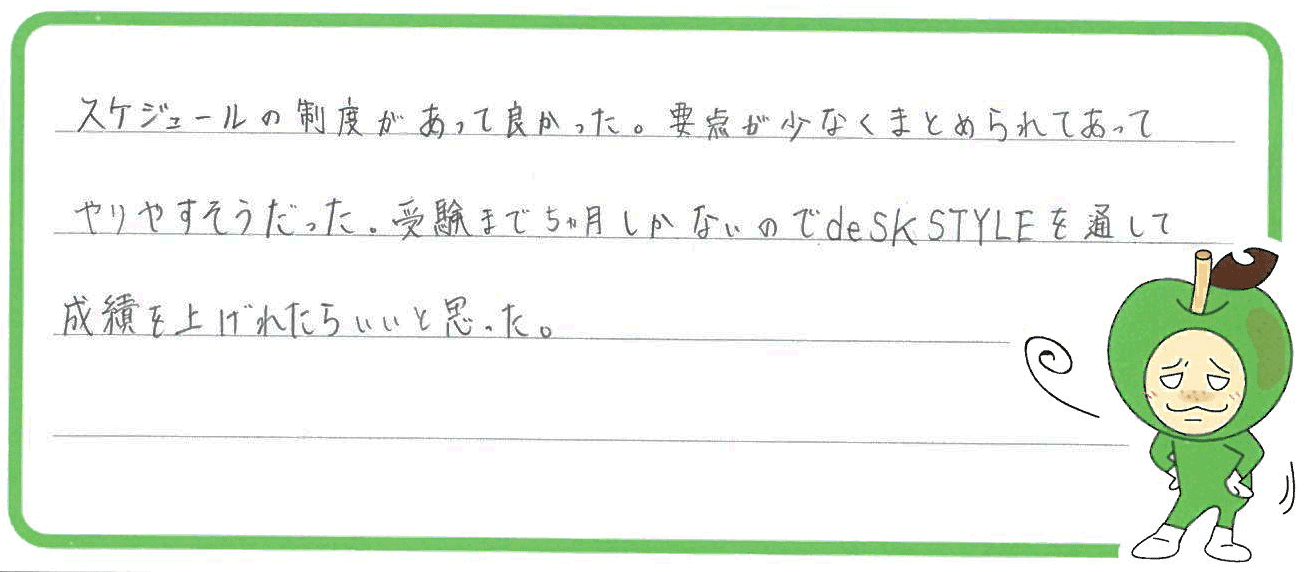 スケジュールの制度があって良かった。要点が少なくまとめられてあって
やりやすそうだった。受験まで5ヵ月しかないのでdeSKSTYLEを通して
成績を上げれたらいいと思った。